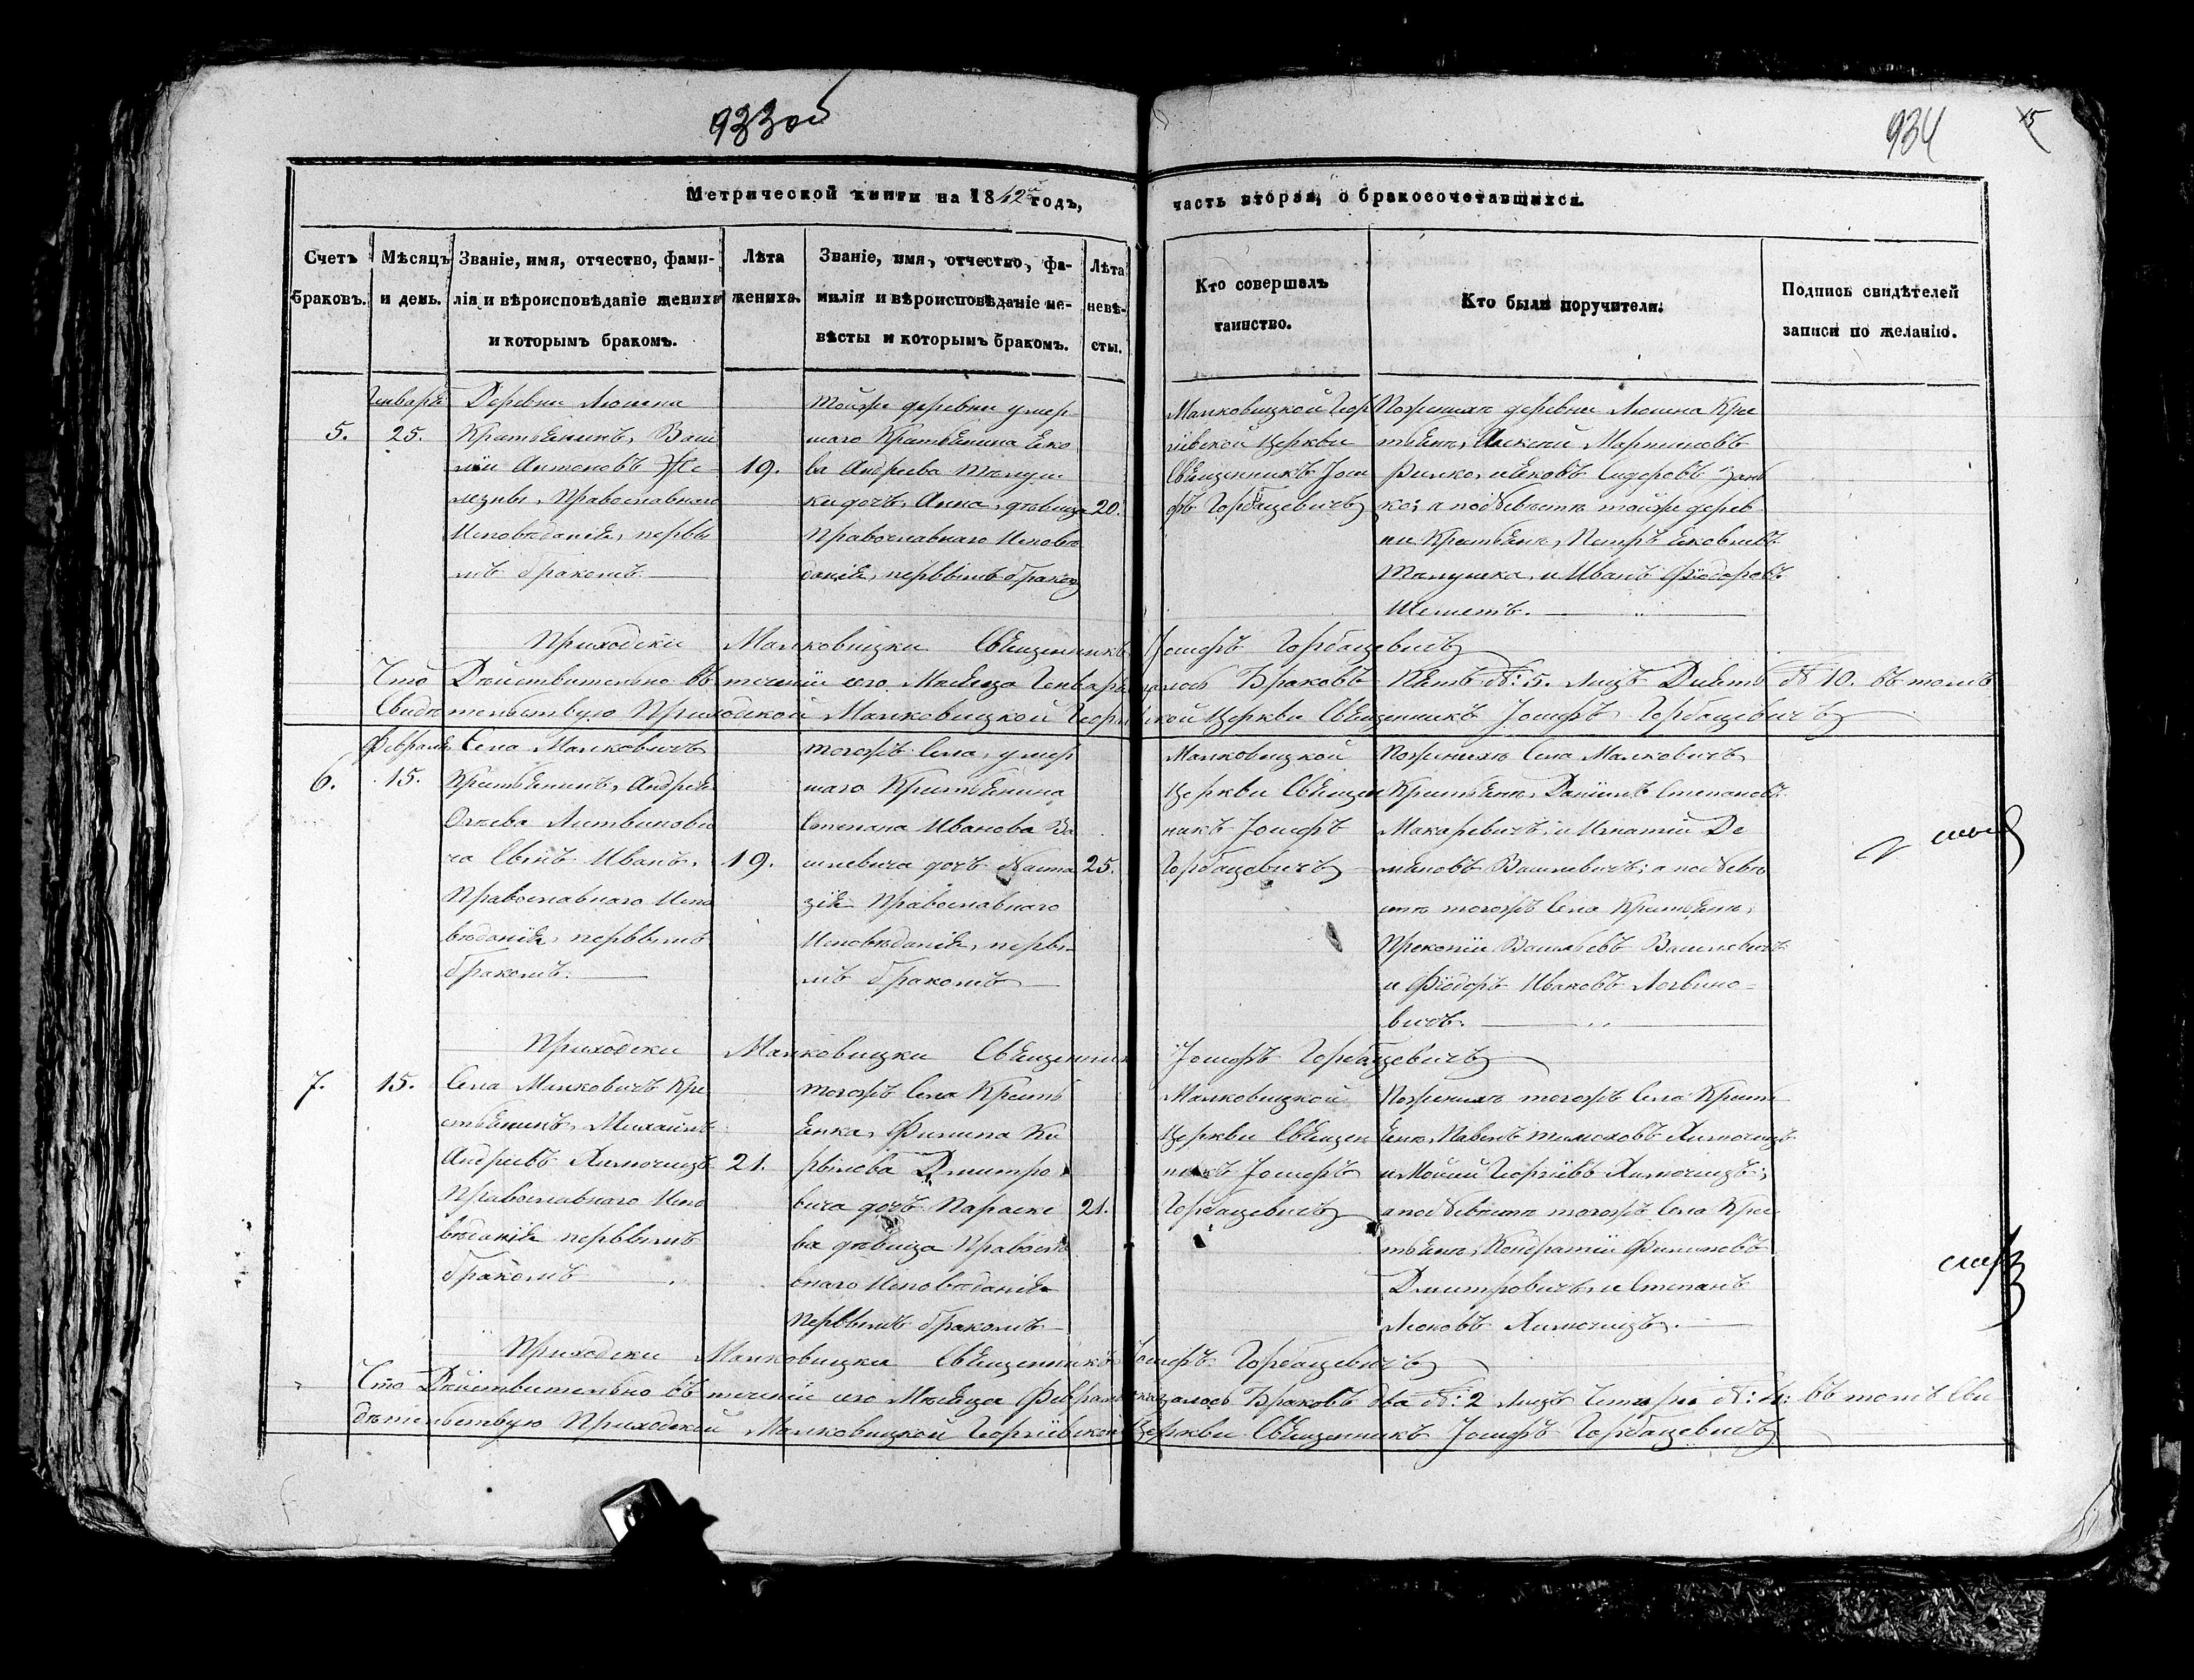 933об
934
15
Метрической книги на 1842й годъ,
часть вторая, о бракосочетавшихся.
Счетъ браковъ.
Мѣсяцъ и день.
Званіе, имя, отчество, фами-
лія и вѣроисповѣданіе жениха
и которымъ бракомъ.
Лѣта
жениха.
Званіе, имя, отчество, фа-
милія и вѣроисповѣданіе не-
вѣсты и которымъ бракомъ.
Лѣта
невѣ-
сты.
Кто совершалъ
таинство.
Кто были поручители.
Подпись свидѣтелей
записи по желанію.
5.
Генваря
25.
Деревни Люшна
Крестьянинъ, Васи
лій Антоновъ Же-
лезны, Православнаго
Исповѣданія, первы
мъ бракомъ
19.
тойже деревни умер
шаго Крестьянина Яко
ва Андреева
ки дочь, Анна, дѣвица
Православнаго Исповѣ
данія, первымъ бракомъ
20.
Малковицкой Геор
гіевской Церкви
Священникъ Іоси
фъ Горбацевичъ
Пожених деревни Люшна Кре
стьяне, Алексей Мартиновъ
и Яковъ Сидоровъ
ко; а по Невѣсте тойже дерев
ни Крестьяне, Петръ Яковлевъ
и Иванъ Фёдоровъ
Шеметъ.
Приходски Малковицки Священникъ Іосифъ Горбацевичъ
Что Действительно въ теченіи сего Месяца Генваря Браковъ Пять №: 5. лицъ Десять № 10. въ томъ
Свидетельствую Приходской Малковицкой Георгіевской Церкви Священникъ Іосифъ Горбацевичъ
6.
Февраля
15.
Села Малковичъ
Крестьянинъ, Андрея
Литвинови
ча Сынъ Иванъ,
Православнаго Испо
вѣданія, первымъ
бракомъ.
19.
тогожъ Села, умер
шаго Крестьянина
Степана Иванова Ва
шкевича дочь Наста
зія Православнаго
Исповѣданія, первы-
мъ бракомъ
25.
Малковицкой
Церкви Священ
никъ Іосифъ
Горбацевичъ
Пожених Села Малковичъ
Крестьяне, Даніилъ Степановъ
Макаревичъ; и Игнатій Де
мяновъ Вашкевичъ; а по Невѣ
сте тогожъ Села Крестьяне,
Прокопій Васильевъ Вашкевичъ
и Фёдоръ Ивановъ Логвино-
вичъ.
Приходски Малковицки Священникъ Іосифъ Горбацевичъ
7.
15.
Села Малковичъ Кре
стьянинъ, Михаилъ
Андреевъ Химочицъ
Православнаго Испо
вѣданія первымъ
бракомъ
21.
тогожъ Села Кресть
янка, Филипа Ки
рылова Дмитро
вича дочь Параске
ва дѣвица Правосла
внаго Исповѣданія
первымъ бракомъ
21.
Малковицкой
Церкви Священ
никъ Іосифъ
Горбацевичъ
Пожених тогожъ Села Кресть
яне, Павелъ Тимоховъ Химочицъ
и Мойсей Георгіевъ Химочицъ;
а по Невѣсте тогожъ Села Крес
тьяне, Кондратій Филиповъ
Дмитровичъ, и Степанъ
Химочицъ.
Приходски Малковицки Священникъ Іосифъ Горбацевичъ
Что Действительно въ теченіи сего Месяца Февраля Браковъ два №: 2 лицъ Четыре №: 4: въ томъ Сви
детельствую Приходской Малковицкой Георгіевской Церкви Священникъ Іосифъ Горбацевичъ